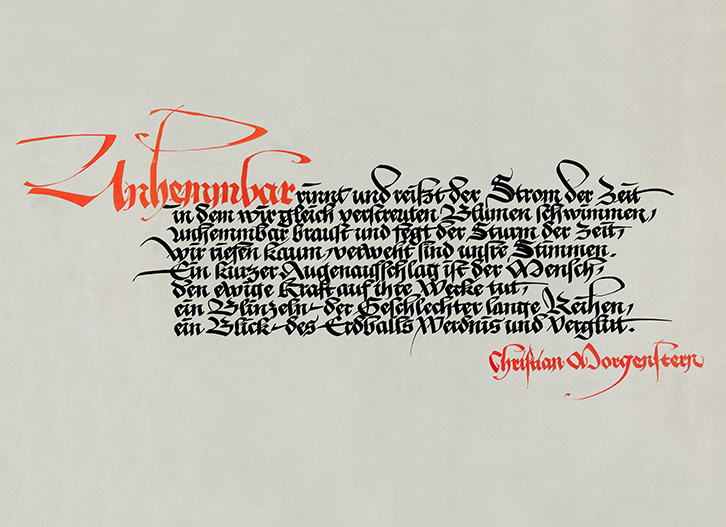 Unhemmbar rinnt und reißt der Strom der Zeit
in dem wir gleich verstreuten Blumen schwimmen,
unhemmbar braust und fegt der Sturm der Zeit,
wir riefen kaum, verweht sind unsre Stimmen.
Ein kurzer Augenaufschlag ist der Mensch,
den ewige Kraft auf ihre Werke tut,
ein Blinzeln – der Geschlechter lange Reihen,
ein Blick – des Erdballs Werdnis und Verglut.
Christian Morgenstern